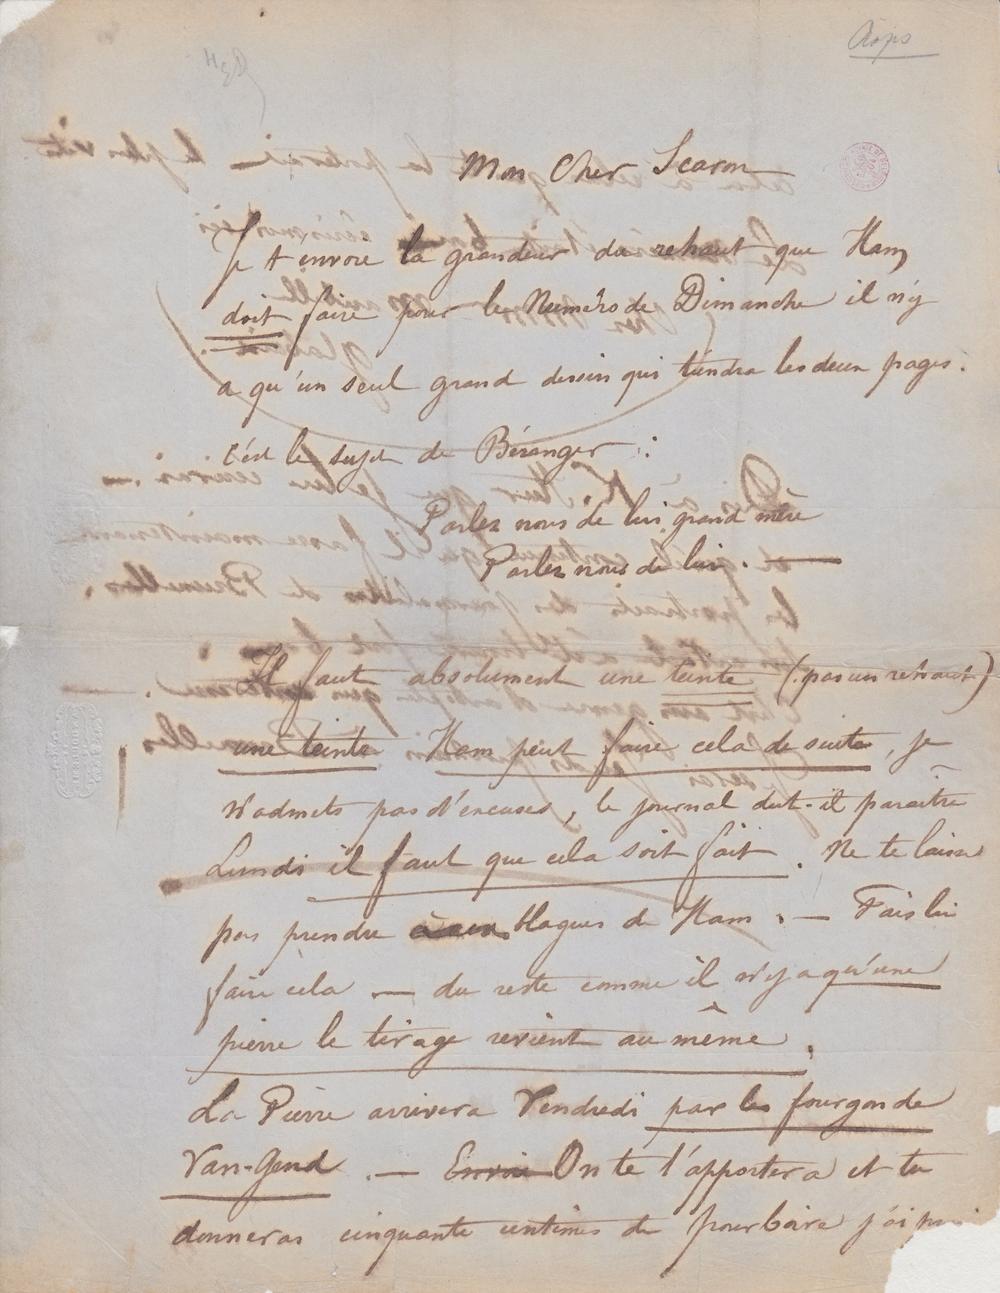 Rops
Mon Cher Scaron
Je t envoie la grandeur du rehaut que Ham
doit faire pour le Numéro de Dimanche il n'y
a qu'un seul grand dessin qui tiendra les deux pages.
c'est le sujet de Béranger :
Parlez nous de lui, grand mère
Parlez nous de lui. —
Il faut absolument une teinte (pas un rehaut)
une teinte Ham peut faire cela de suite, je
n'admets pas d'excuses, le journal dut-il paraitre
Lundi il faut que cela soit fait. Ne te laisse
pas prendre blagues de Ham. — Fais lui
faire cela — du reste comme il n'y a qu'une
pierre le tirage revient au même.
La Pierre arrivera Vendredi par les fourgons de
Van-Gend. — Envoi On te l'apportera et tu
donneras cinquante centimes de pourboire j'ai